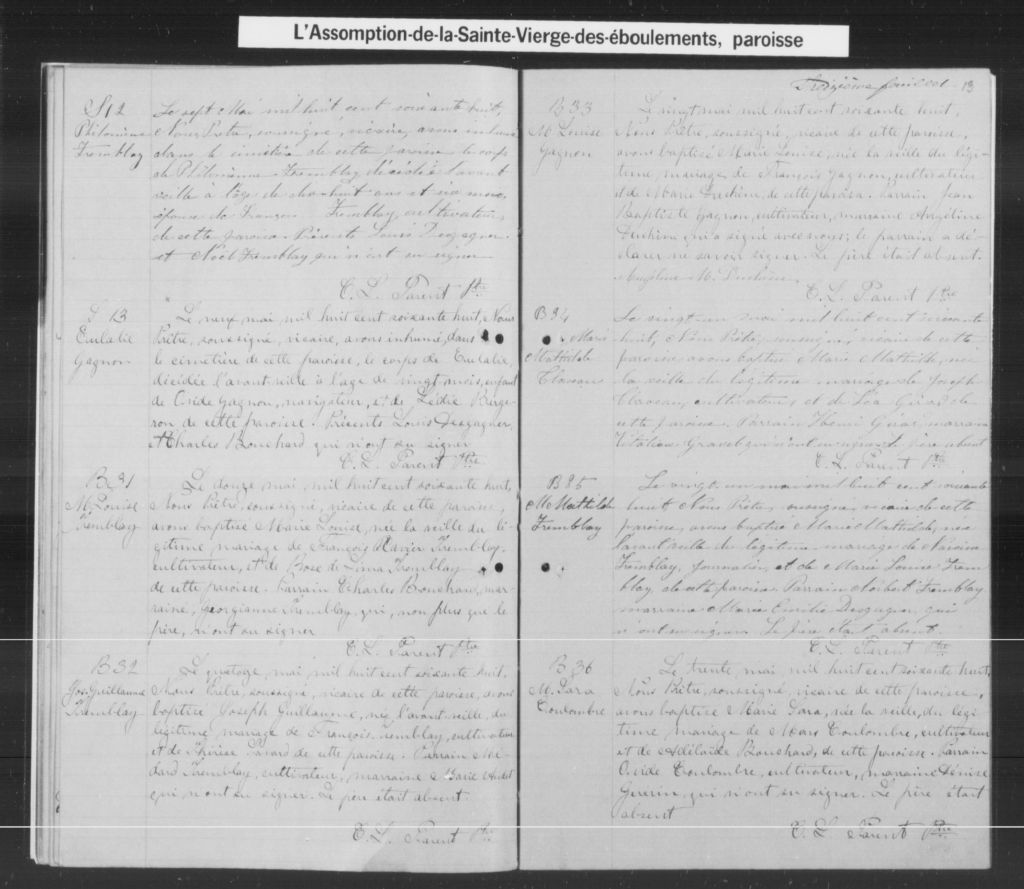 L'Assomption-de-la-Sainte-Vierge-des-éboulements, paroisse
S 12
Philomène
Tremblay
Le sept Mai mil huit cent soixante huit,
Nous Prêtre, soussigné, vicaire, avons inhumé
dans le cimetière de cette paroisse le corps
de Philomène Tremblay décédée l'avant
veille à l'âge de ans et six mois
épouse de François Tremblay, cultivateur,
de cette paroisse. Présents Louis Desgagner
et Noël Tremblay qui n'ont su signer
C. L. Parent Ptre
S 13
Eulalie
Gagnon
Le neuf mai, mil huit cent soixante huit, Nous
Prêtre, soussigné, vicaire, avons inhumé, dans
le cimetière de cette paroisse, le corps de Eulalie,
décédée l'avant veille à l'age de vingt mois, enfant
de Ovide Gagnon, navigateur, et de Lédie Berge-
ron de cette paroisse. Présents Louis Desgagner
et Charles Bouchard qui n'ont su signer
C. L. Parent Ptre
B 31
M. Louise
Tremblay
Le douze mai mil huit cent soixante huit,
Nous Prêtre, soussigné, vicaire de cette paroisse,
avons baptisé Marie Louise, née la veille du lé-
gitime mariage de François Tremblay,
cultivateur, et de Rose de Lima Tremblay
de cette paroisse. Parrain Charles Bouchard, mar-
raine, Georgianne Tremblay, qui, non plus que le
père, n'ont su signer
C. L. Parent Ptre
B 32
Jos. Guillaume
Tremblay
Le quatorze mai mil huit cent soixante huit.
Nous Prêtre, soussigné, vicaire de cette paroisse, avons
baptisé Joseph Guillaume, né l'avant veille, du
légitime mariage de François Tremblay, cultivateur
et de Thérèse de cette paroisse. Parrain Mé-
dard Tremblay, cultivateur, marraine Marie
qui n'ont su signer. Le père était absent.
C. L. Parent Ptre
Treizième feuillet 13
B 33
M. Louise
Gagnon
Le vingt mai mil huit cent soixante huit,
Nous Prêtre, soussigné, vicaire de cette paroisse,
avons baptisé Marie Louise, née la veille du légi-
time, mariage de François Gagnon, cultivateur
et de Marie Duchène, de cette paroisse. Parrain Jean
Baptiste Gagnon, cultivateur, marraine Angéline
Duchène qui a signé avec nous; le parrain a dé-
claré ne savoir signer. Le père était absent.
Angéline M. Duchène
C. L. Parent Ptre
B 34
Marie
Mathilde
Le vingt un mai mil huit cent soixante
huit, Nous Prêtre, soussigné, vicaire de cette
paroisse, avons baptisé Marie Mathilde, née
la veille du légitime mariage de Joseph
cultivateur, et de Léa Girard de
cette paroisse. Parrain Henri Girard, marraine
Gravel qui n'ont su signer. Le père absent
C. L. Parent Ptre
B 35
M. Mathilde
Tremblay
Le vingt un mai mil huit cent soixante
huit Nous Prêtre, soussigné, vicaire de cette
paroisse, avons baptisé Marie Mathilde, née
l'avant veille du légitime mariage de
Tremblay, journalier, et de Marie Louise Trem
blay, de cette paroisse. Parrain Norbert Tremblay
marraine Marie Emélie Desgagner, qui
n'ont su signer. Le père était absent.
C. L. Parent Ptre
B 36
M. Zara
Coulombre
Le trente mai mil huit cent soixante huit,
Nous Prêtre, soussigné, vicaire de cette paroisse,
avons baptisé Marie Zara, née la veille, du légi
time mariage de Mars Coulombre, cultivateur
et de Adélaïde Bouchard, de cette paroisse. Parrain
Ovide Coulombre, cultivateur, marraine Denise
Guérin, qui n'ont su signer. Le père était
absent
C. L. Parent Ptre